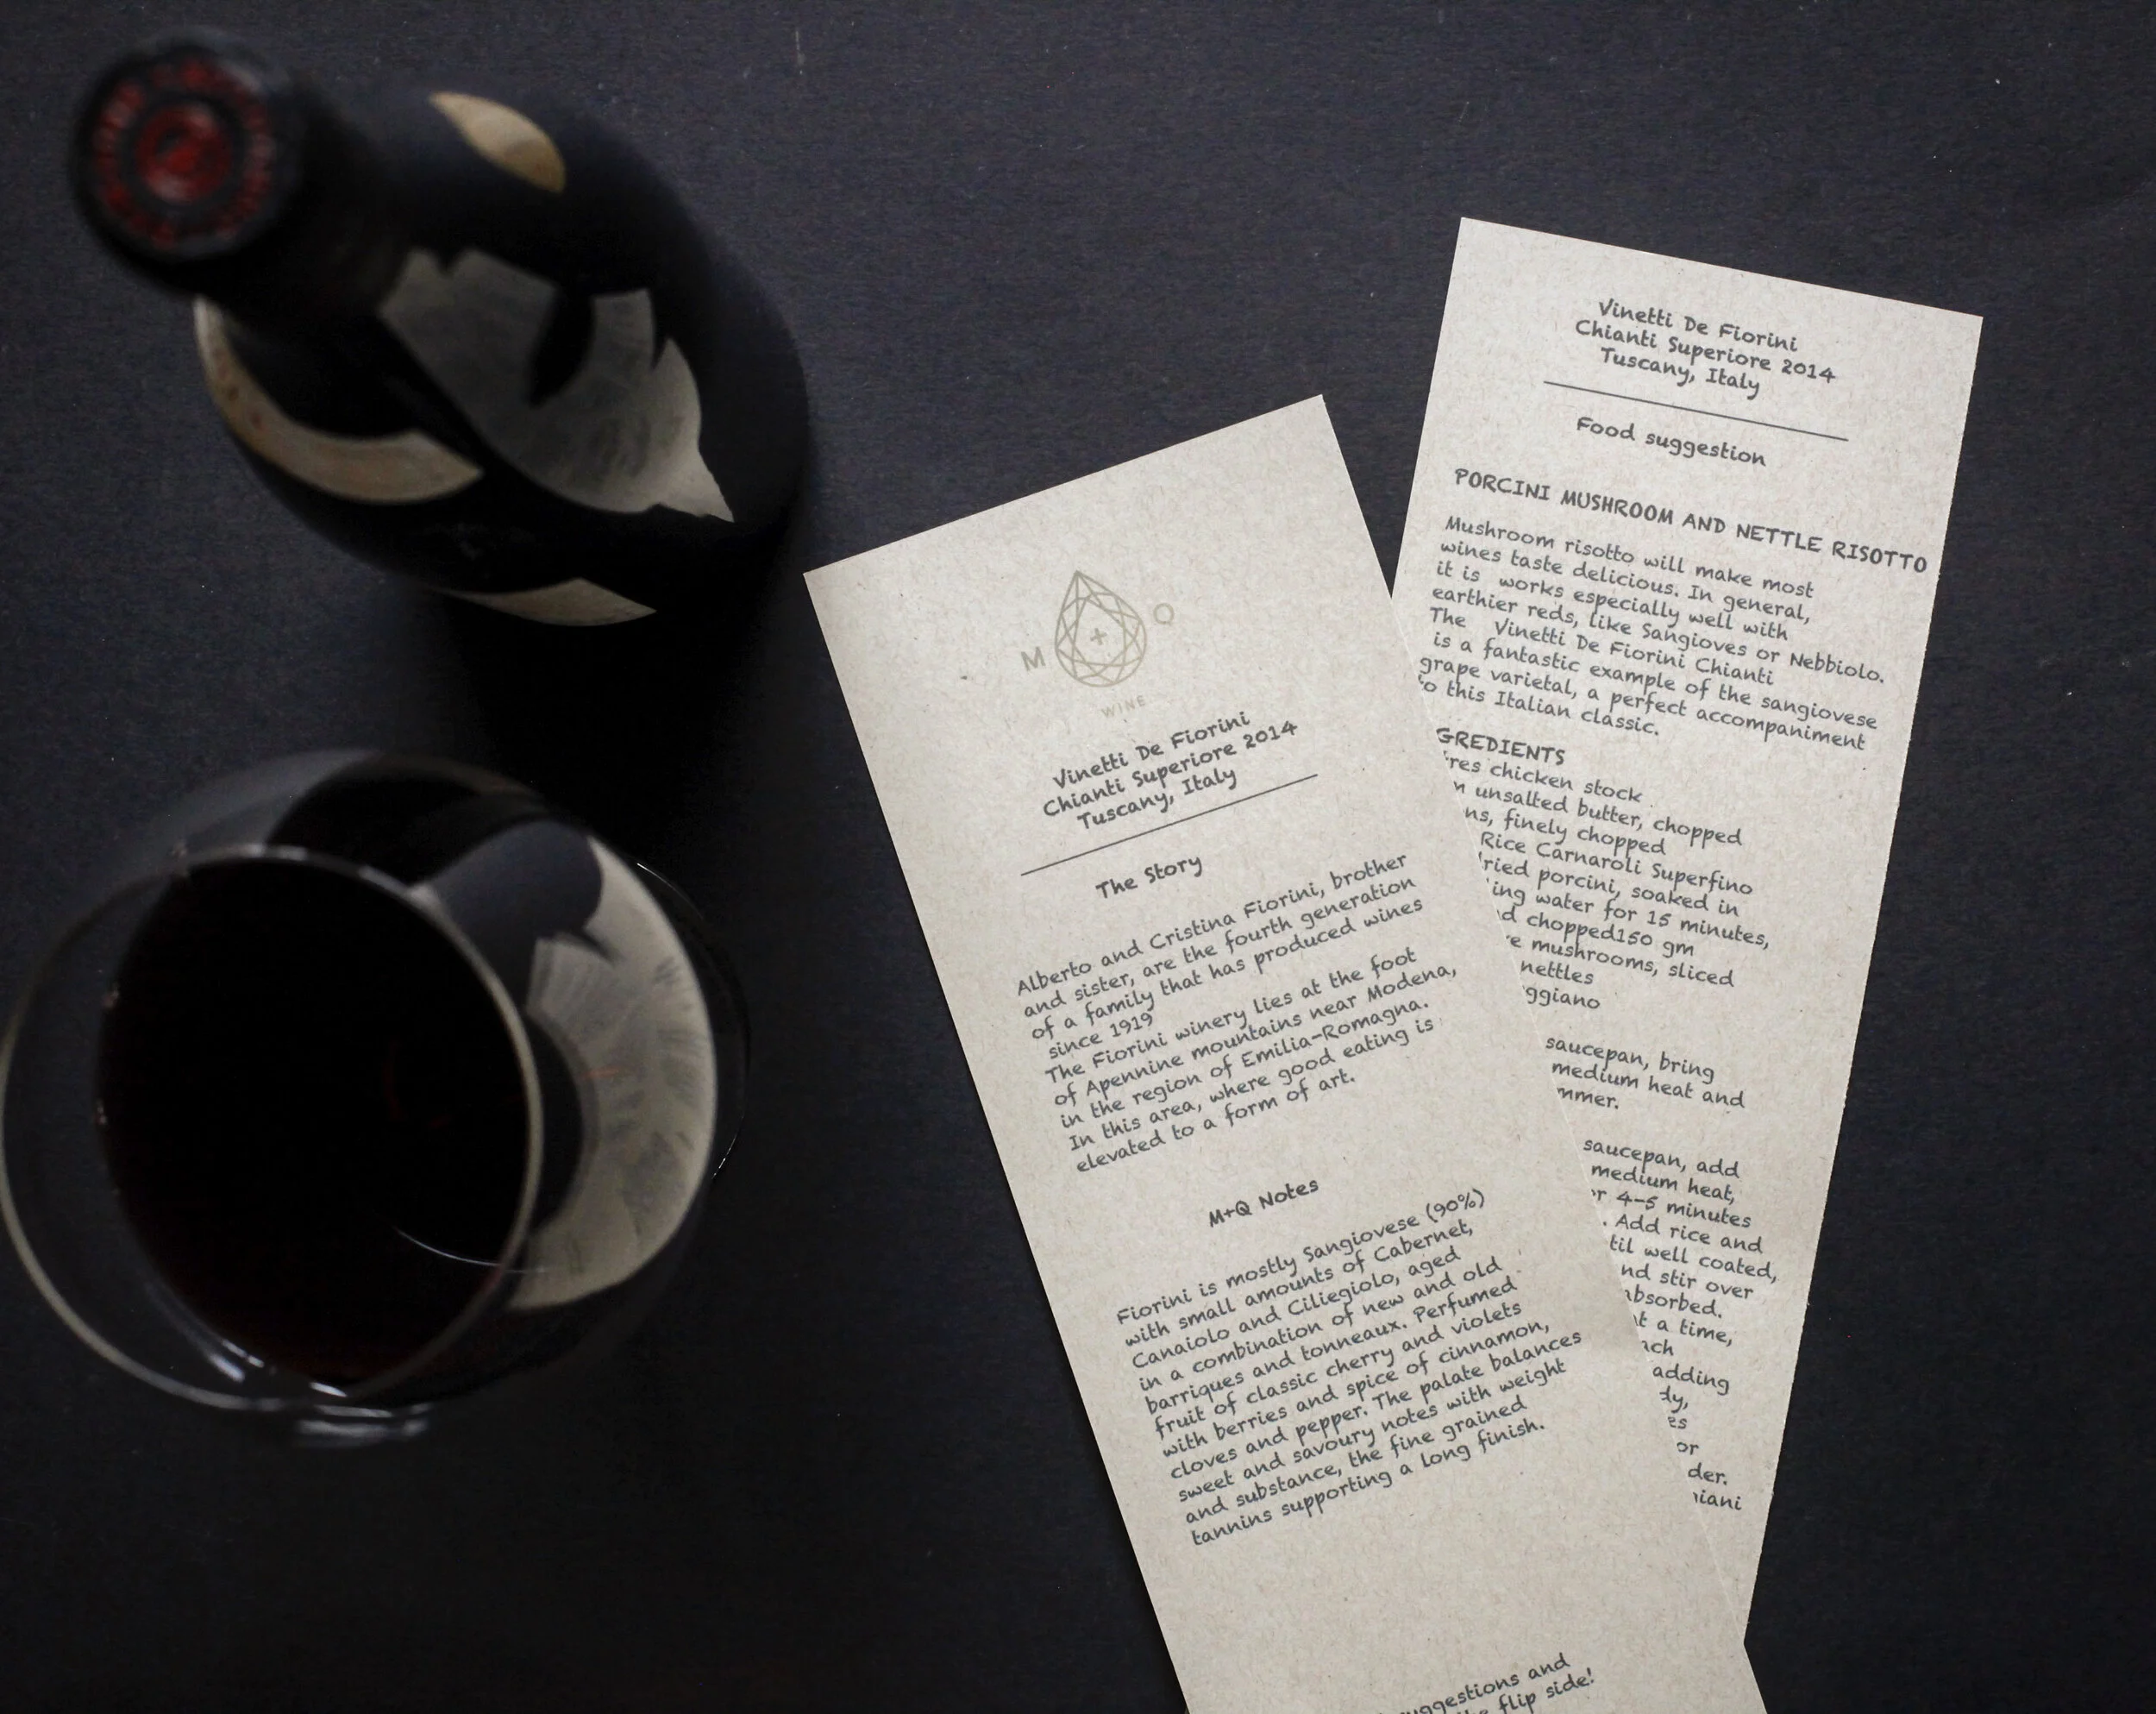 M
Q
WINE
Vinetti De Fiorini
Chianti Superiore 2014
Tuscany, Italy
The Story
Alberto and Cristina Fiorini, brother
and sister, are the fourth generation
of a family that has produced wines
since 1919
The Fiorini winery lies at the foot
of Apennine mountains near Modena,
in the region of Emilia-Romagna.
In this area, where good eating is
elevated to a form of art.
M+Q Notes
Fiorini is mostly Sangiovese (90%)
with small amounts of Cabernet,
Canaiolo and Ciliegiolo, aged
in a combination of new and old
barriques and tonneaux. Perfumed
fruit of classic cherry and violets
with berries and spice of cinnamon,
cloves and pepper. The palate balances
sweet and savoury notes with weight
and substance, the fine grained
tannins supporting a long finish.
uggestions and
flip side!
Vinetti De Fiorini
Chianti Superiore 2014
Tuscany, Italy
Food suggestion
PORCINI MUSHROOM AND NETTLE RISOTTO
Mushroom risotto will make most
wines taste delicious. In general,
it is works especially well with
earthier reds, like Sangioves or Nebbiolo.
The Vinetti De Fiorini Chianti
is a fantastic example of the sangiovese
grape varietal, a perfect accompaniment
to this Italian classic.
GREDIENTS
res chicken stock
unsalted butter, chopped
ns, finely chopped
Rice Carnaroli Superfino
ried porcini, soaked in
ing water for 15 minutes,
d chopped150 gm
e mushrooms, sliced
nettles
ggiano
saucepan, bring
medium heat and
mmer.
saucepan, add
medium heat,
r 4-5 minutes
. Add rice and
til well coated,
nd stir over
absorbed.
t a time,
ach
adding
dy,
es
or
der.
iani